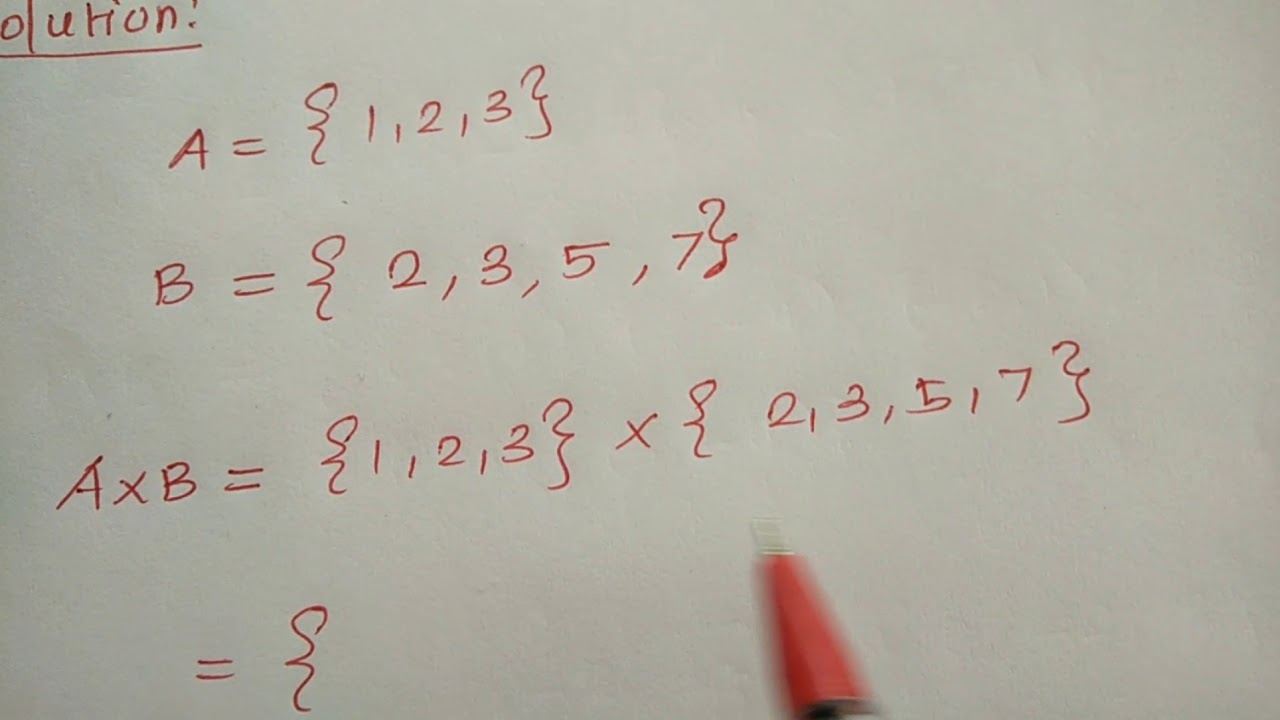 olution:
A = { 1, 2, 3 }
B = { 2, 3, 5, 7 }
A×B = { 1, 2, 3 } × { 2, 3, 5, 7 }
= {